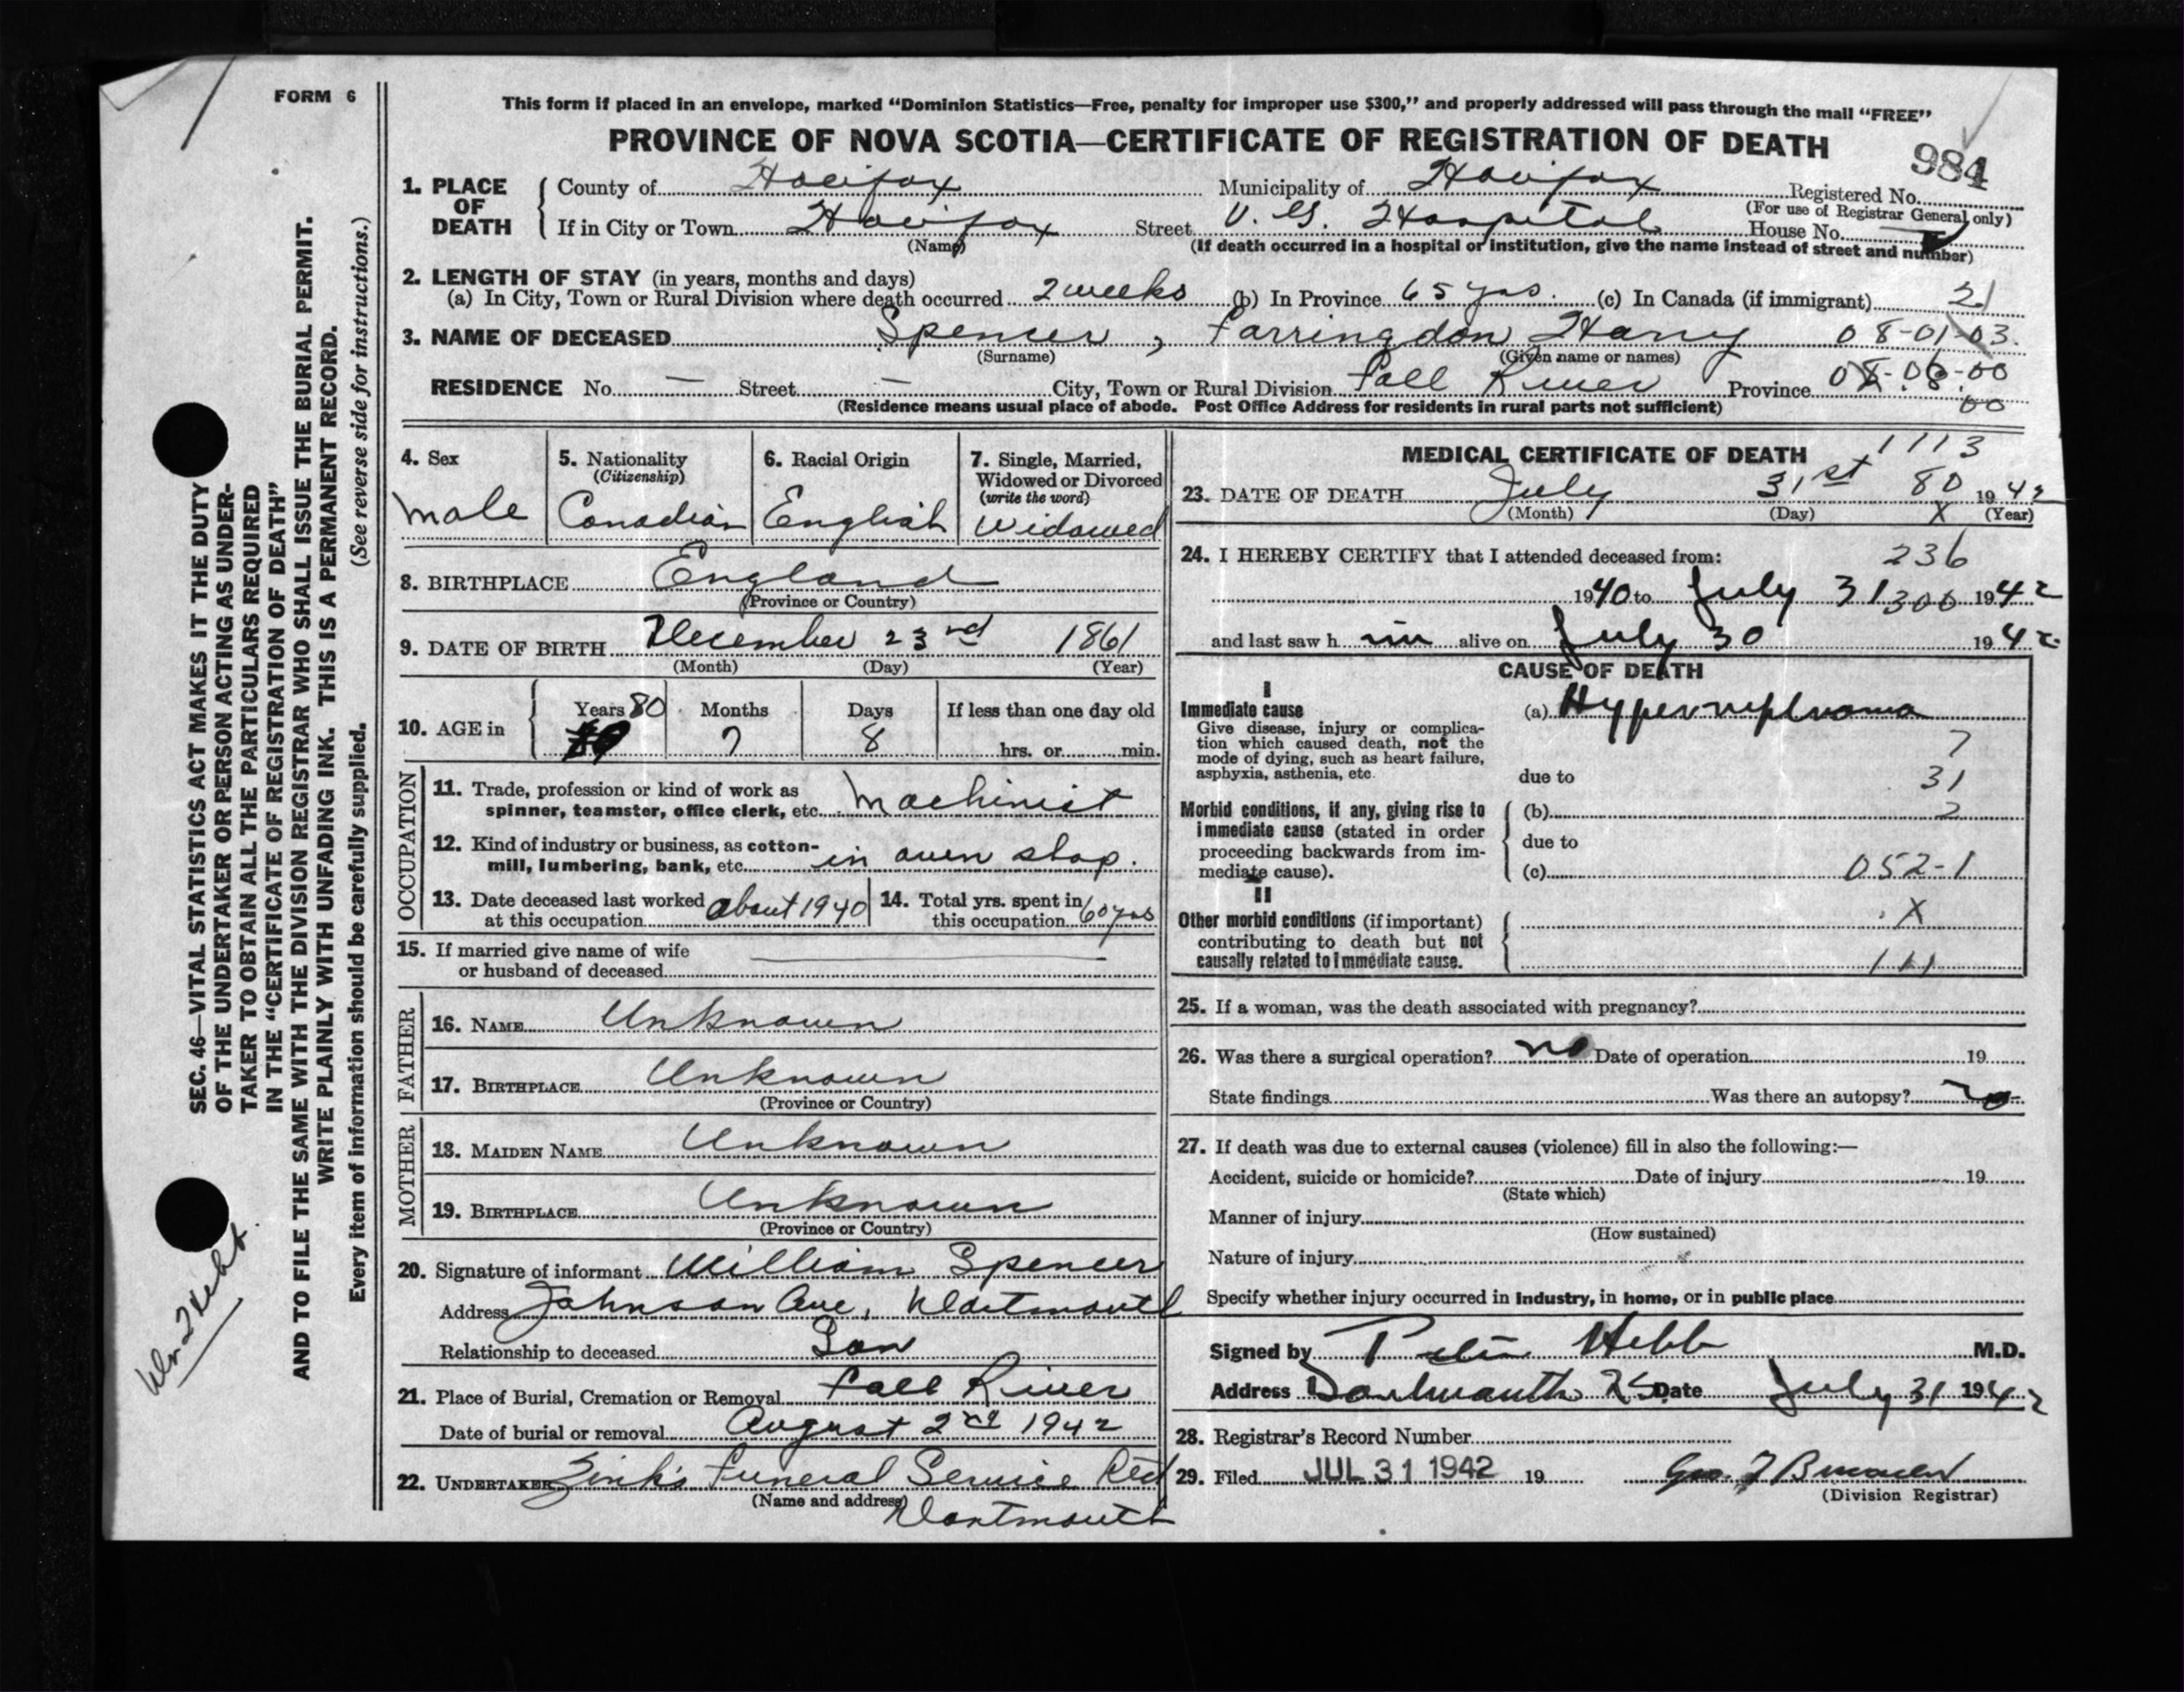 FORM 6
This form if placed in an envelope, marked “Dominion Statistics—Free, penalty for improper use $300,” and properly addressed will pass through the mail “FREE”
PROVINCE OF NOVA SCOTIA—CERTIFICATE OF REGISTRATION OF DEATH
984
1. PLACE OF DEATH County of Halifax Municipality of Halifax Registered No.
(For use of Registrar General only)
If in City or Town Halifax Street V. G. Hospital House No.
(Name) (If death occurred in a hospital or institution, give the name instead of street and number)
2. LENGTH OF STAY (in years, months and days)
(a) In City, Town or Rural Division where death occurred 2 weeks (b) In Province 65 yrs. (c) In Canada (if immigrant) 21
3. NAME OF DECEASED Spencer, Farringdon Harry 08-01-03.
(Surname) (Given name or names)
RESIDENCE No. — Street — City, Town or Rural Division Fall River Province 08-06-00
(Residence means usual place of abode. Post Office Address for residents in rural parts not sufficient) 00
4. Sex
male
5. Nationality
(Citizenship)
Canadian
6. Racial Origin
English
7. Single, Married,
Widowed or Divorced
(write the word)
Widowed
8. BIRTHPLACE England
(Province or Country)
9. DATE OF BIRTH December 23rd 1861
(Month) (Day) (Year)
10. AGE in Years 80 Months 7 Days 8 If less than one day old
hrs. or min.
OCCUPATION
11. Trade, profession or kind of work as
spinner, teamster, office clerk, etc. Machinist
12. Kind of industry or business, as cotton-
mill, lumbering, bank, etc. in own shop.
13. Date deceased last worked
at this occupation about 1940
14. Total yrs. spent in
this occupation 60 yrs
15. If married give name of wife
or husband of deceased
FATHER
16. NAME Unknown
17. BIRTHPLACE Unknown
(Province or Country)
MOTHER
18. MAIDEN NAME Unknown
19. BIRTHPLACE Unknown
(Province or Country)
20. Signature of informant William Spencer
Address Johnson Ave, Dartmouth
Relationship to deceased Son
21. Place of Burial, Cremation or Removal Fall River
Date of burial or removal August 2nd 1942
22. UNDERTAKER Zink's Funeral Service Ltd
(Name and address)
Dartmouth
MEDICAL CERTIFICATE OF DEATH 1113
23. DATE OF DEATH July 31st 80 1942
(Month) (Day) X (Year)
24. I HEREBY CERTIFY that I attended deceased from: 236
1940 to July 31 300 1942
and last saw h im alive on July 30 1942
CAUSE OF DEATH
I
Immediate cause
Give disease, injury or complica-
tion which caused death, not the
mode of dying, such as heart failure,
asphyxia, asthenia, etc.
(a) Hypernephroma
7
due to 31
Morbid conditions, if any, giving rise to
immediate cause (stated in order
proceeding backwards from im-
mediate cause).
(b) 2
due to
(c) 052-1
II
Other morbid conditions (if important)
contributing to death but not
causally related to immediate cause.
X
111
25. If a woman, was the death associated with pregnancy?
26. Was there a surgical operation? no Date of operation 19
State findings Was there an autopsy? no
27. If death was due to external causes (violence) fill in also the following:—
Accident, suicide or homicide? Date of injury 19
(State which)
Manner of injury
(How sustained)
Nature of injury
Specify whether injury occurred in Industry, in home, or in public place
Signed by Hebb M.D.
Address Dartmouth NS Date July 31 1942
28. Registrar's Record Number
29. Filed JUL 31 1942 19 Geo.
(Division Registrar)
SEC. 46—VITAL STATISTICS ACT MAKES IT THE DUTY
OF THE UNDERTAKER OR PERSON ACTING AS UNDER-
TAKER TO OBTAIN ALL THE PARTICULARS REQUIRED
IN THE “CERTIFICATE OF REGISTRATION OF DEATH”
AND TO FILE THE SAME WITH THE DIVISION REGISTRAR WHO SHALL ISSUE THE BURIAL PERMIT.
WRITE PLAINLY WITH UNFADING INK. THIS IS A PERMANENT RECORD.
Every item of information should be carefully supplied. (See reverse side for instructions.)